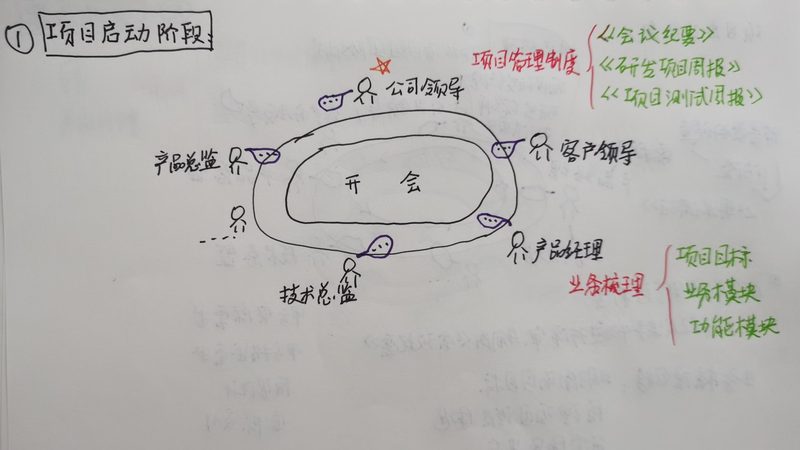 ① 项目启动阶段:
项目管理制度
《会议纪要》
《研发项目周报》
《项目测试周报》
公司领导
产品总监
客户领导
开会
产品经理
技术总监
业务梳理
项目目标
业务模块
功能模块